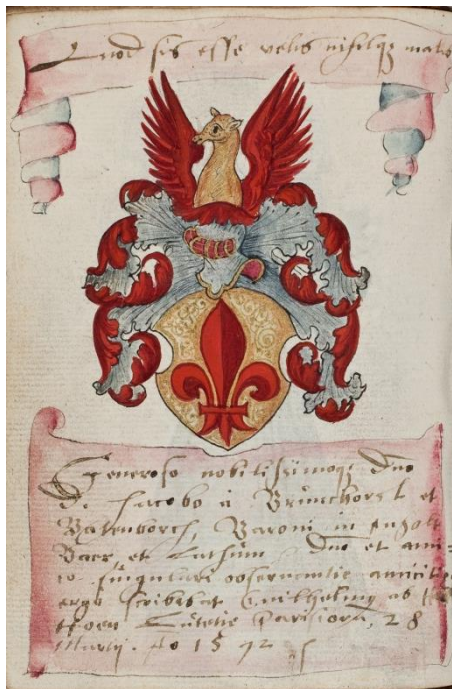 Quod sis esse velis nihilq3 malis
Generoso nobilissimoq3 Dno
D. Jacobo à Brunchorst et
Batenborch, Baroni in Anholt
Baer et Lathum Dno et ami=
co singulari observantiæ amicitiæ
ergo scribebat Guilhelmus ab
Lutetiæ Parisiorū, 28
Martij. Ao 1572